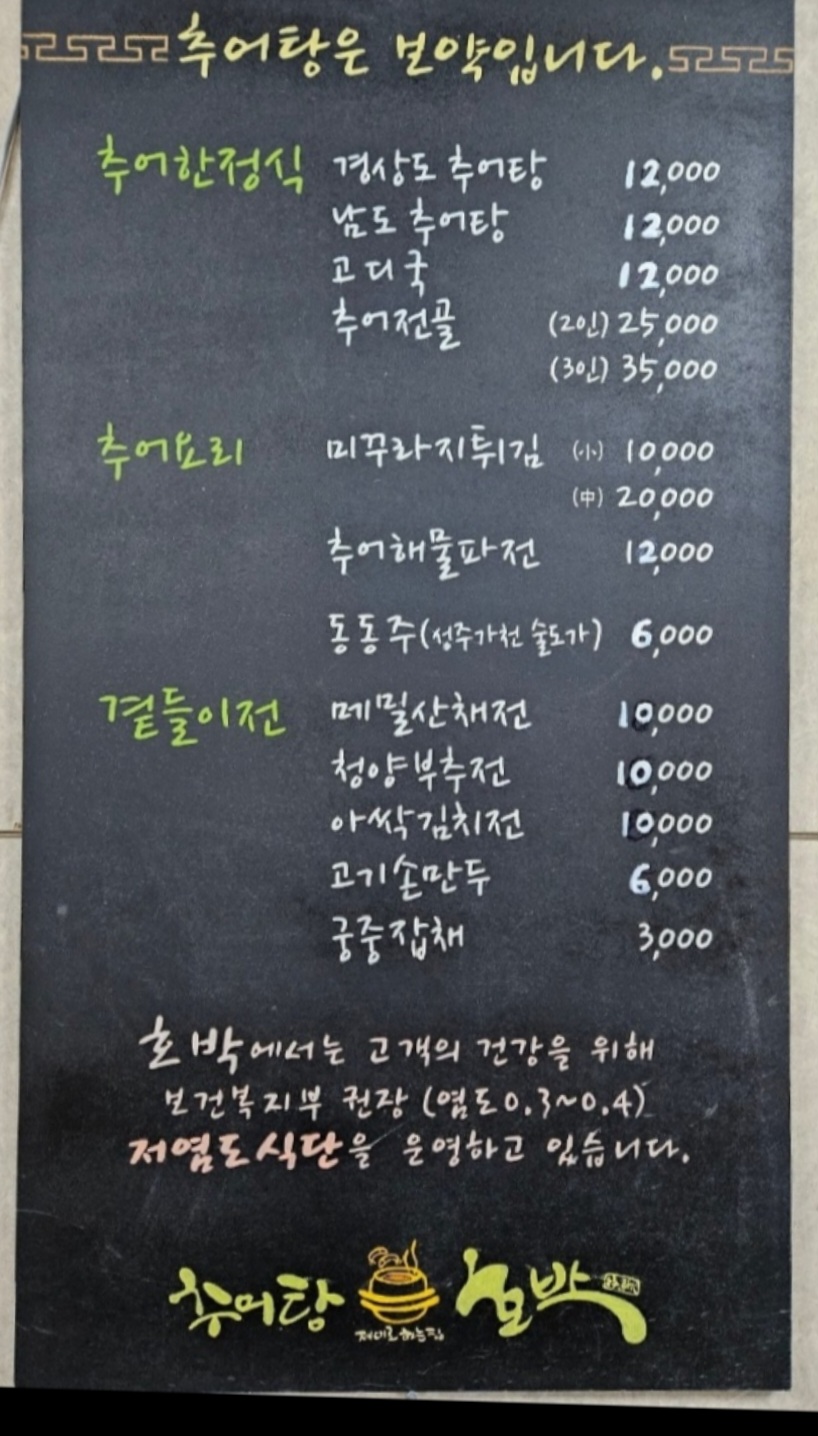 추어탕은 보약입니다.
추어한정식 경상도 추어탕 12,000
남도 추어탕 12,000
고디국 12,000
추어전골 (2인) 25,000
(3인) 35,000
추어요리 미꾸라지튀김 (小) 10,000
(中) 20,000
추어해물파전 12,000
동동주(성주가천 술도가) 6,000
곁들이전 메밀산채전 10,000
청양부추전 10,000
아싹김치전 10,000
고기손만두 6,000
궁중잡채 3,000
호박에서는 고객의 건강을 위해
보건복지부 권장 (염도0.3~0.4)
저염도식단을 운영하고 있습니다.
추어탕 호박